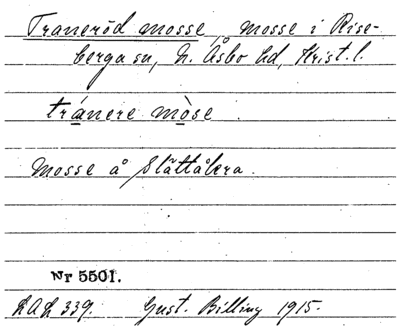 Traneröd mosse, mosse i Rise-
berga sn, N. Åsbo hd, Krist. l.
tránere mòse
Mosse å Slättåkra.
Nr 5501.
LAL 339. Gust. Billing 1915.